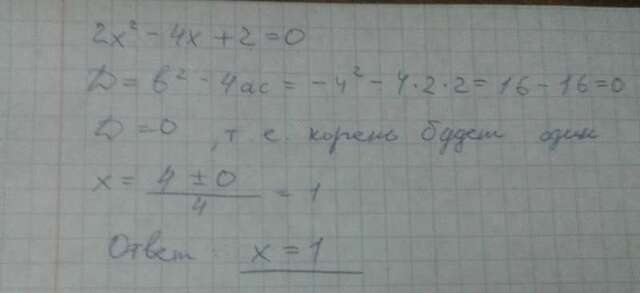 2x² - 4x + 2 = 0
D = b² - 4ac = -4² - 4·2·2 = 16 - 16 = 0
D = 0, т. е. корень будет один
x = (4 ± 0)/4 = 1
Ответ: x = 1